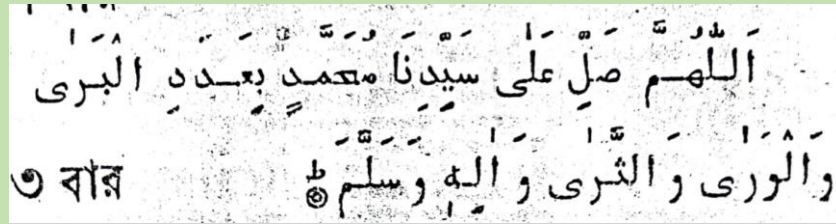 اَللّٰهُمَّ صَلِّ عَلٰى سَيِّدِنَا مُحَمَّدٍ بِعَدَدِ الْبَرٰى
وَالْوَرٰى وَ الثَّرٰى وَ اٰلِهٖ وَسَلَّمَ ط ৩ বার